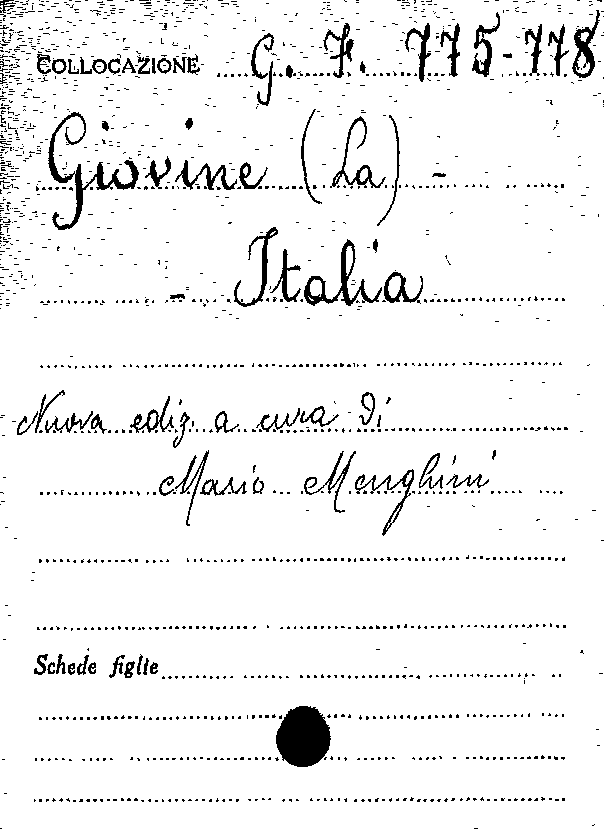 COLLOCAZIONE G. F. 775-778
Giovine (La) -
- Italia
Nuova ediz. a cura di
Mario Menghini
Schede figlie